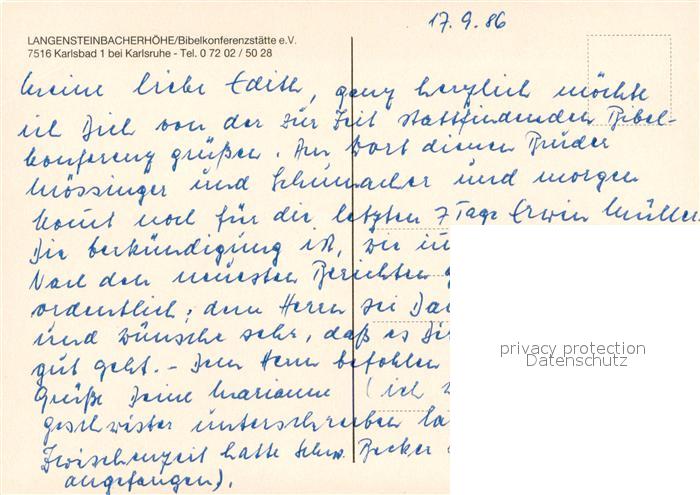 17.9.86
LANGENSTEINBACHERHÖHE/Bibelkonferenzstätte e.V.
7516 Karlsbad 1 bei Karlsruhe - Tel. 0 72 02 / 50 28
Meine liebe Edith, ganz herzlich möchte
ich Dich von der zur Zeit stattfindenden Bibel-
konferenz grüßen. Am Wort dienen Brüder
Mössinger und Schumacher und morgen
komt noch für die letzten 7 Tage Erwin Müller.
Die Verkündigung ist, wie im
Nach den neuesten Berichten
ordentlich; dem Herrn sei Da
und wünsche sehr, daß es Dir
gut geht. - Dem Herrn befohlen
Grüße Deine Marianne (ich
geschwister unterschreiben la
Zwischenzeit hatte Schw. Becker
angefangen).
privacy protection
Datenschutz